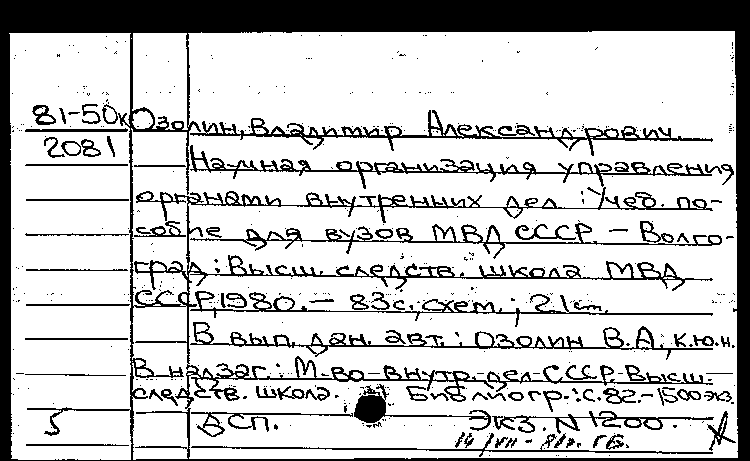 81-50к Озолин, Владимир Александрович.
2081 Научная организация управления
органами внутренних дел : Учеб. по-
собие для вузов МВД СССР. – Волго-
град : Высш. следств. школа МВД
СССР, 1980. – 83 с., схем. ; 21 см.
В вып. дан. авт. : Озолин В.А., к.ю.н.
В надзаг. : М-во внутр. дел СССР. Высш.
следств. школа. Библиогр.: с. 82. – 1500 экз.
5 ДСП. Экз. N 1200.